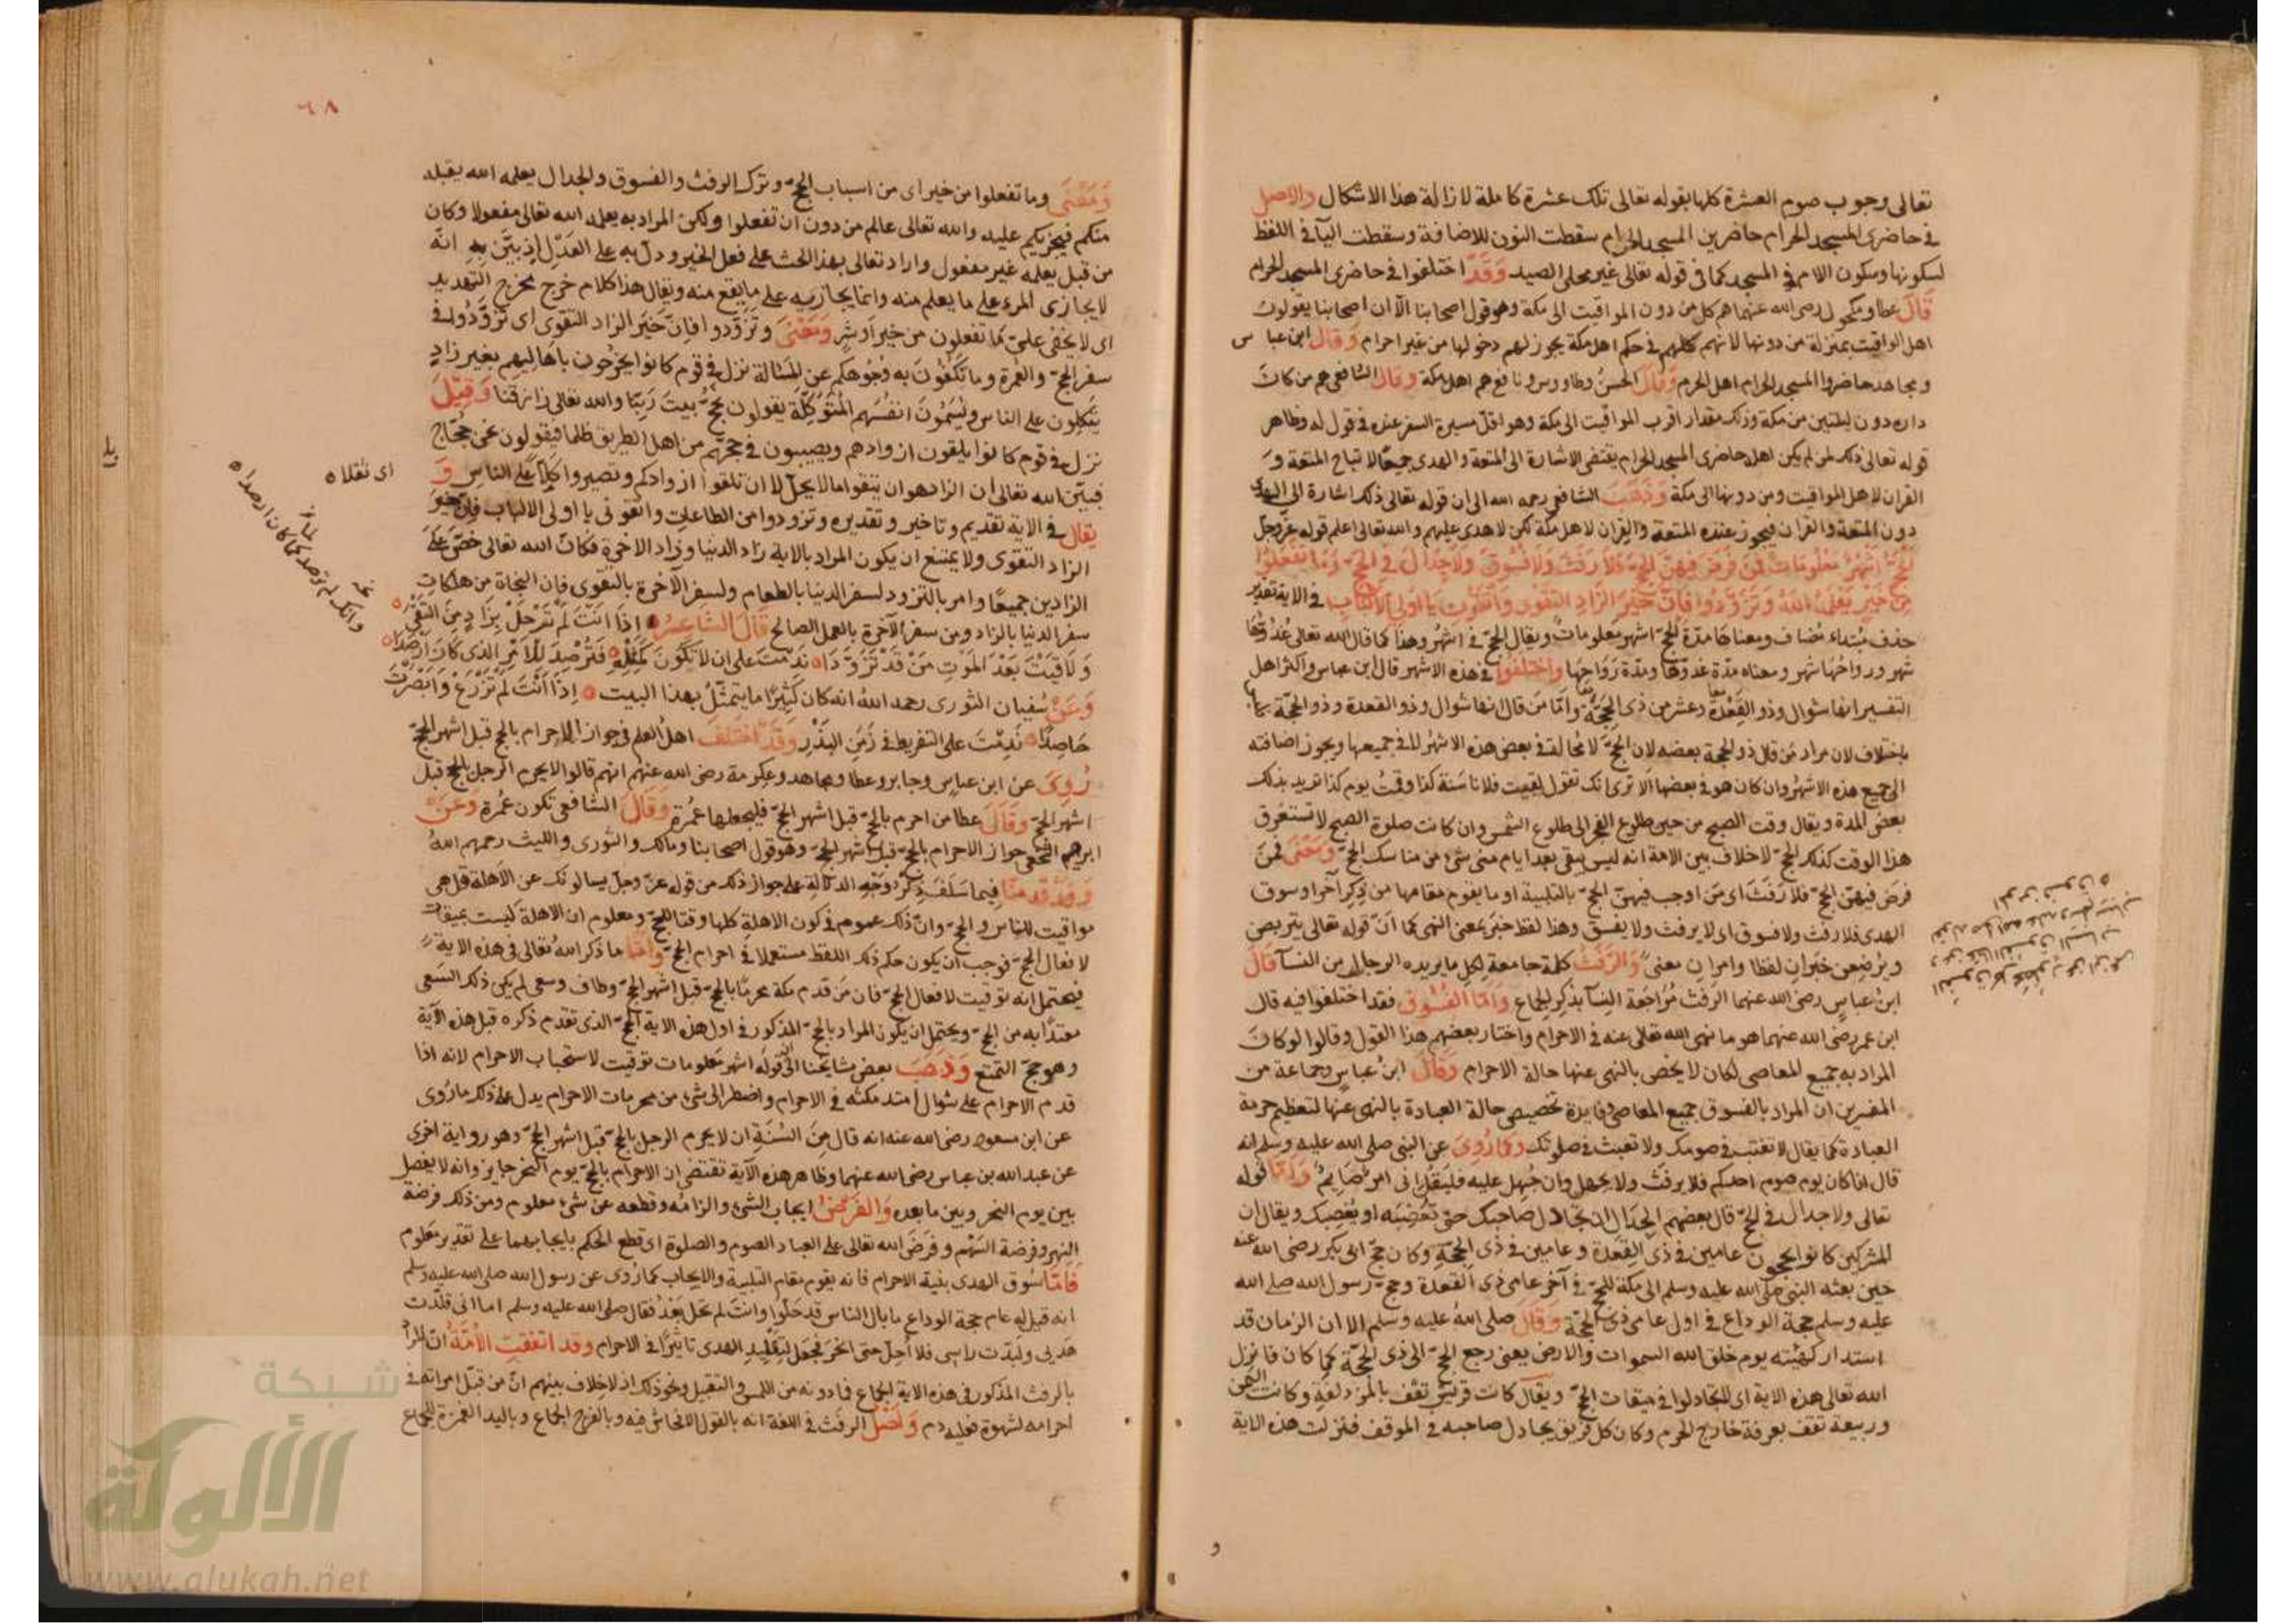 تعالى وجوب صوم العشرة كلها بقوله تعالى تلك عشرة كاملة لازالة هذا الاشكال والاصل
في حاضرى المسجد الحرام حاضرين المسجد الحرام سقطت النون للاضافة وسقطت اليآ في اللفظ
لسكونها وسكون اللام في المسجد كما في قوله تعالى غير محلى الصيد وَقَدْ اختلفوا في حاضرى المسجد الحرام
قَالَ عطا ومكحول رضى الله عنهما هم كل من دون المواقيت الى مكة وهو قول اصحابنا الّا ان اصحابنا يقولون
اهل المواقيت بمنزلة من دونها لانهم كلهم في حكم اهل مكة يجوز لهم دخولها من غير احرام وَقَال ابن عباس
ومجاهد حاضروا المسجد الحرام اهل الحرم وَقَالَ الحسنُ وطاووس ونافع هم اهل مكة وَقَالَ الشافعى هم من كانَ
داره دون ليلتين من مكة وذلك مقدار اقرب المواقيت الى مكة وهو اقلّ مسيرة السفر عنده في قول له وظاهر
قوله تعالى ذلك لمن لم يكن اهله حاضرى المسجد الحرام يقتضى الاشارة الى المتعة والهدى جميعًا لا تباح المتعة وَ
القران لاهل المواقيت ومن دونها الى مكة وَذَهَبَ الشافعى رحمه الله الى ان قوله تعالى ذلك اشارة الى الهدى
دون المتعة والقران فيجوز عنده المتعة والقِران لاهل مكة لكن لا هدى عليهم والله تعالى اعلم قوله عزّ وجلّ
اَلْحَجُّ اَشْهُرٌ مَعْلُومَاتٌ فَمَنْ فَرَضَ فِيهِنَّ الْحَجَّ فَلَا رَفَثَ وَلَا فُسُوقَ وَلَا جِدَالَ في الْحَجِّ وَمَا تَفْعَلُوا
مِنْ خَيْرٍ يَعْلَمْهُ اللهُ وَتَزَوَّدُوا فَاِنَّ خَيْرَ الزَّادِ التَّقْوٰى وَاتَّقُونِ يَا اُولِى الْاَلْبَابِ في الاية تقدير
حذف مُبتداء مُضاف ومعناها مدّة الحجّ اشهر معلومات ويقال الحجّ في اشهُر وهذا كما قال الله تعالى غُدُوُّها
شهر ورواحُها شهر ومعناه مدّة غدوّها ومدّة رَوَاحِها واختلفوا في هذه الاشهر قال ابن عباس واكثر اهل
التفسير انها شوال وذو القِعْدة وعشر من ذى الحِجَّة وامّا مَن قال انها شوال وذو القعدة وذو الحجّة
باختلاف لان مراد مَن قال ذو الحجة بعضه لان الحجّ لا مُحالة في بعض هذه الاشهُر لا في جميعها ويجوز اضافته
الى جميع هذه الاشهُر وان كان هو في بعضها اَلا ترى انك تقول لقيت فلانا سَنَة كذا وقدمْتُ يوم كذا تريد بذلك
بعضَ المدة ويقال وقت الصبح من حين طلوع الفجر الى طلوع الشمس وان كانت صلوة الصبح لا تستغرق
هذا الوقت كذلك الحجّ لا خلاف بين الامة انه ليس يبقى بعد ايام منى شئ من مناسك الحجّ وَمَعْنَى فمَن
فرَض فيهنّ الحجّ فلا رَفَثَ اى مَن اوجب فيهنّ الحجّ بالتلبية او ما يقوم مقامها من ذِكرٍ آخر او سوق
الهدى فلا رفث ولا فسوق اى لا يرفث ولا يفسق وهذا لفظ خبَر بمعنى النهى كما انّ قوله تعالى يتربصن
ويُرضِعن خبَرانِ لفظا وامرَانِ معنى وَالرَّفَثُ كلمة جامعة لكلِ ما يريده الرجال من النسآ قَالَ
ابنُ عباسٍ رضى الله عنهما الرفث مُرَاجَعة النِسآ بذكر الجماع وَاَمّا الفُسُوق فقد اختلفوا فيه قال
ابن عمر رضى الله عنهما هو ما نهى الله تعالى عنه في الاحرام واختار بعضهم هذا القول وقالوا لو كانَ
المراد به جميع المعاصى لكان لا يخصّ بالنهى عنها حالة الاحرام وَقَالَ ابنُ عباسٍ وجماعة من
المفسرين ان المراد بالفسوق جميع المعاصى وفايدة تخصيص حالة العبادة بالنهى عنها لتعظيم حرمة
العبادة كما يقال لا تغتب في صومك ولا تعبث في صلوتك وكما رُوِىَ عن النبى صلى الله عليه وسلم انه
قال اذا كان يوم صوم احدكم فلا يرفث ولا يجهل وان جُهِل عليه فليَقُل انى امرُؤٌ صَايِمٌ وَاَمّا قوله
تعالى ولا جدال في الحجّ قال بعضهم الجِدَال ان تُجادل صاحبك حتى تُغضِبَه او يُغضِبك ويقال ان
المشركين كانوا يحجون عامين في ذى القِعْدة وعامين في ذى الحِجّةِ وكان حَجّ ابى بكر رضى الله عنه
حين بعثه النبى صلى الله عليه وسلم الى مكة للحجّ في آخر عامى ذى القعدة وحجّ رسول الله صلى الله
عليه وسلم حجة الوداع في اول عامى ذى الحجّة وَقَالَ صلى الله عليه وسلم الا ان الزمان قد
استدار كهيئته يوم خلق الله السموات والارض يعنى رجع الحجّ الى ذى الحجّة كما كان فانزل
الله تعالى هذه الاية اى لا تجادلوا في ميقات الحجّ ويقال كانت قريش تقف بالمزدلفةِ وكانت اليمن
وربيعة تقف بعرفة خارج الحرم وكان كل فريق يجادل صاحبه في الموقف فنزلت هذه الاية
٦٨
وَمَعْنَى وما تفعلوا من خير اى من اسباب الحجّ وترك الرفث والفسوق والجدال يعلمه الله يقبله
منكم فيجزيكم عليه والله تعالى عالم من دون ان تفعلوا ولكن المراد به يعلمه الله تعالى مفعولا وكان
من قبل يعلمه غير مفعول واراد تعالى بهذا الحث على فعل الخير ودلّ به على العَدْل اذ بيّنَ بهِ انّه
لا يجازى المرء على ما يعلم منه وانما يجازيه على ما يقع منه ويقال هذا كلام خرج مخرج التهديد
اى لا يخفى علىّ ما تفعلون من خير اَو شرٍ وَمَعْنَى وتَزَوَّدوا فانّ خيَر الزاد التقوى اى تَزَوَّدُوا في
سفر الحجّ والعُمرة وما تَكُفُّونَ به وُجُوهكم عن المسَألة نزل في قوم كانوا يخرُجُون باَهاليهِم بغير زادٍ
يَتّكِلون على الناس ويُسَمُّونَ انفُسَهم المُتَوَكِّلَة يقولون نحُجّ بيتَ رَبِّنا والله تعالى رازقنا وَقِيْلَ
نزل في قوم كانوا يلقون ازوادهم ويصيبون في حجّهم من اهل الطريق ظلما فيقولون نحن حجّاج
فبيّن الله تعالى ان الزاد هو ان يتقوا ما لا يحلّ لا ان تلقوا ازوادكم وتصيروا كَلًّا على الناس وَ
يقال في الاية تقديم وتاخير وتقديره وتزودوا من الطاعات واتقونى يا اولى الالباب فان خيرَ
الزاد التقوى ولا يمتنع ان يكون المراد بالاية زاد الدنيا وزاد الاخرة فكانّ الله تعالى حَضّ علَى
الزادين جميعًا وامر بالتزود لسفر الدنيا بالطعام ولسفر الآخرة بالتقوى فان النجاة من هلكاتِ
سفر الدنيا بالزاد ومن سفر الآخرة بالعمل الصالح قَالَ الشاعِرُ اِذَا اَنْتَ لَمْ تَرْحَلْ بِزَادٍ مِنَ التُّقَى
وَلَاقَيْتَ بَعْدَ المَوْتِ مَنْ قَدْ تَزَوَّدَا نَدِمْتَ على ان لا تكُونَ كَمِثْلِهِ فَتُرْصِدَ لِلْاَمْرِ الذى كَانَ اَرْصَدَا
وَعَنْ سُفيان الثورى رحمه الله انه كان كَثِيْرًا ما يتمثّلُ بهذا البيت اِذَا اَنْتَ لَمْ تَزْرَعْ وَاَبْصَرْتَ
حَاصِدًا نَدِمْتَ على التفريط في زَمَنِ البَذْرِ وَقَدْ اختَلفَ اهلُ العلم في جواز الاحرام بالحج قبل اشهر الحجّ
رُوِىَ عن ابن عباسٍ وجابر وعطا ومجاهد وعكرمة رضى الله عنهم انهم قالوا لا يحرم الرجل بالحج قبل
اشهر الحجّ وَقَالَ عطا من احرم بالحجّ قبل اشهر الحجّ فليجعلها عُمرة وَقَالَ الشافعى تكون عُمرة وعَنْ
ابرهيم النخعى جواز الاحرام بالحجّ قبل اشهر الحجّ وهو قول اصحابنا ومالك والثورى والليث رحمهم اللهُ
وَقَدْ قدمنَا فيما سَلَفَ ذِكْرَ وَجْهِ الدلالة على جواز ذلك من قوله عزّ وجلّ يسألونك عن الاَهلة قل هى
مواقيت للناس والحجّ وانّ ذلك عموم في كون الاهلةِ كلها وقتا للحجّ ومعلوم ان الاهلة ليست بميقات
لافعال الحجّ فوجب ان يكون حكم ذلك اللفظ مستعملا في احرام الحجّ وامّا ما ذكر الله تعالى في هذه الاية
فيحتمل انه توقيت لافعال الحجّ فان مَن قدم مكة محرمًا بالحجّ قبل اشهُر الحجّ وطاف وسعى لم يكن ذلك السَعى
معتدًّا به من الحجّ ويحتمل ان يكون المراد بالحجّ المذكور في اول هذه الاية الحجّ الذى تقدم ذكره قبل هذه الآية
وهو حجّ التمتع وَذَهَبَ بعض مشايخنا الى انّ قولَه اشهر مَعلومات توقيت لاستحباب الاحرام لانه اذا
قدم الاحرام على شوال امتد مكثه في الاحرام واضطر الى شئ من محرمات الاحرام يدل على ذلك ما رُوِى
عن ابن مسعود رضى الله عنه انه قال مِنَ السُنّةِ ان لا يحرم الرجل بالحجّ قبل اشهر الحجّ وهو رواية اخرى
عن عبد الله بن عباس رضى الله عنهما وظاهر هذه الآية تقتضى ان الاحرام بالحجّ يوم النحر جايز وانه لا يفصل
بين يوم النحر وبين ما بعده وَالفَرْضُ ايجاب الشئ والزامُه وقطعه عن شئ معلوم ومن ذلك فرضة
النهر وفرضة السَهْم وفرَضَ الله تعالى على العباد الصوم والصلوة اى قطع الحكم بايجابهما على تقدير مَعلوم
فَاَمَّا سَوق الهدى بنية الاحرام فانه يقوم مقام التلبية والايجاب كما رُوى عن رسول الله صلى الله عليه وسلم
انه قيل له عام حجة الوداع ما بال الناس قد حَلّوا وانتَ لم تحل بَعْدُ فقال صلى الله عليه وسلم اما انى قلّدت
هَديِى ولَبّدت راسى فلا اُحِلّ حتى انحرَ فجعَل لتِقْلِيدِ الهدى تاثيرًا في الاحرام وقد اتفقتِ الاُمّةُ انّ المرادَ
بالرفث المذكور في هذه الاية الجماع فما دونه من اللمس والتقبيل ونحو ذلك اذ لا خلاف بينهم انّ من قبّل امراته في
احرامه لشهوة فعليه دم وَاَصْلُ الرفث في اللغة انه بالقول الافحاش فيه وبالفرج الجماع وباليد الغمزة للجماع
اى ثقلا
وانك لم ترصد كما كان ارصدا
شبكة
الألوكة
www.alukah.net